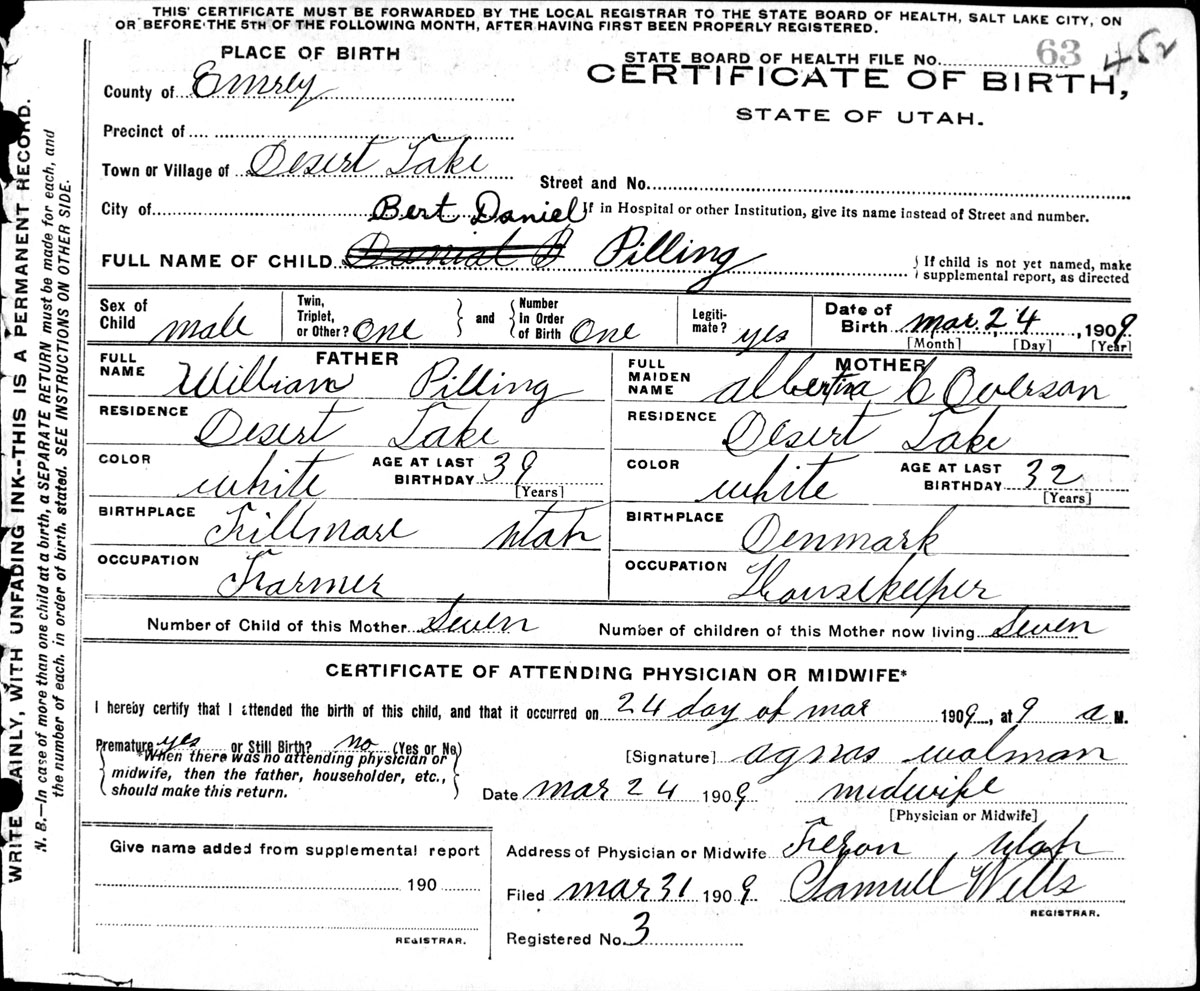 THIS CERTIFICATE MUST BE FORWARDED BY THE LOCAL REGISTRAR TO THE STATE BOARD OF HEALTH, SALT LAKE CITY, ON
OR BEFORE THE 5TH OF THE FOLLOWING MONTH, AFTER HAVING FIRST BEEN PROPERLY REGISTERED.
PLACE OF BIRTH
STATE BOARD OF HEALTH FILE No. 63 452
County of Emrey
CERTIFICATE OF BIRTH,
STATE OF UTAH.
Precinct of
Town or Village of Desert Lake
Street and No.
City of
Bert Daniel
If in Hospital or other Institution, give its name instead of Street and number.
FULL NAME OF CHILD Danial B Pilling
If child is not yet named, make
supplemental report, as directed
Sex of Child male
Twin, Triplet, or Other? One
and
Number In Order of Birth One
Legiti-mate? yes
Date of Birth mar. 24, 1909
[Month] [Day] [Year]
FATHER
FULL NAME William Pilling
RESIDENCE Desert Lake
COLOR white
AGE AT LAST BIRTHDAY 39
[Years]
BIRTHPLACE Fillmore Utah
OCCUPATION Farmer
MOTHER
FULL MAIDEN NAME Albertina C Overson
RESIDENCE Desert Lake
COLOR white
AGE AT LAST BIRTHDAY 32
[Years]
BIRTHPLACE Denmark
OCCUPATION Housekeeper
Number of Child of this Mother Seven
Number of children of this Mother now living Seven
CERTIFICATE OF ATTENDING PHYSICIAN OR MIDWIFE*
I hereby certify that I attended the birth of this child, and that it occurred on 24 day of mar 1909, at 9 a M.
Premature yes or Still Birth? no (Yes or No)
*When there was no attending physician or
midwife, then the father, householder, etc.,
should make this return.
[Signature] agnas wolman
Date mar 24 1909 midwife
[Physician or Midwife]
Give name added from supplemental report
190
REGISTRAR.
Address of Physician or Midwife Feron Utah
Filed mar 31 1909 Samuell Wells
REGISTRAR.
Registered No. 3
WRITE PLAINLY, WITH UNFADING INK--THIS IS A PERMANENT RECORD.
N. B.—In case of more than one child at a birth, a SEPARATE RETURN must be made for each, and
the number of each, in order of birth, stated. SEE INSTRUCTIONS ON OTHER SIDE.